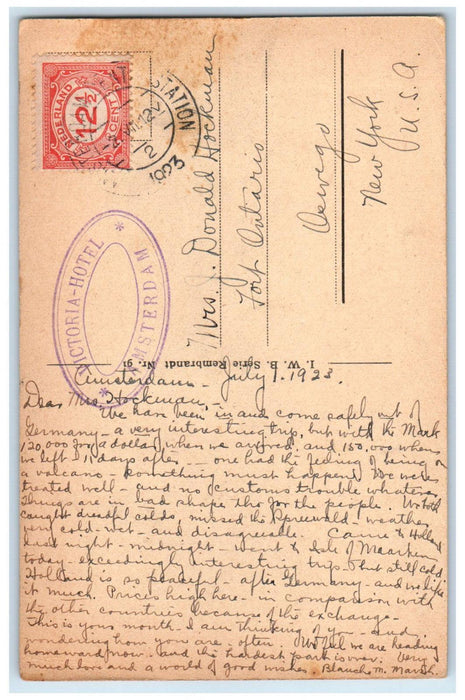 NEDERLAND
12½
CENT
STATION
1923
VICTORIA-HOTEL
* AMSTERDAM *
Mrs. J. Donald Hockman
Fort Ontario
Oswego
New York
U.S.A.
I. W. B. Serie Rembrandt Nr. 91
Amsterdam - July 1. 1923.
Dear Mrs. Hockman, -
We have been in and come safely out of
Germany - a very interesting trip, but with the Mark
120,000 for a dollar, when we arrived, and 150,000 when
we left 11 days after - one had the feeling of being on
a volcano - something must happen. We were
treated well - and no customs trouble whatever
Things are in bad shape tho for the people. We both
caught dreadful colds, missed the Spreewald - weather
very cold - wet - and disagreeable. Came to Holland
last night - midnight - went to Isle of Maarken
today - exceedingly interesting trip - but still cold.
Holland is so peaceful - after Germany - and we like
it much. Prices high here - in comparison with
the other countries because of the exchange -
This is your month I am thinking of you - and
wondering how you are - often. Well we are heading
homeward now - and the hardest part is over. Very
much love and a world of good wishes. Blanche M. Marsh.